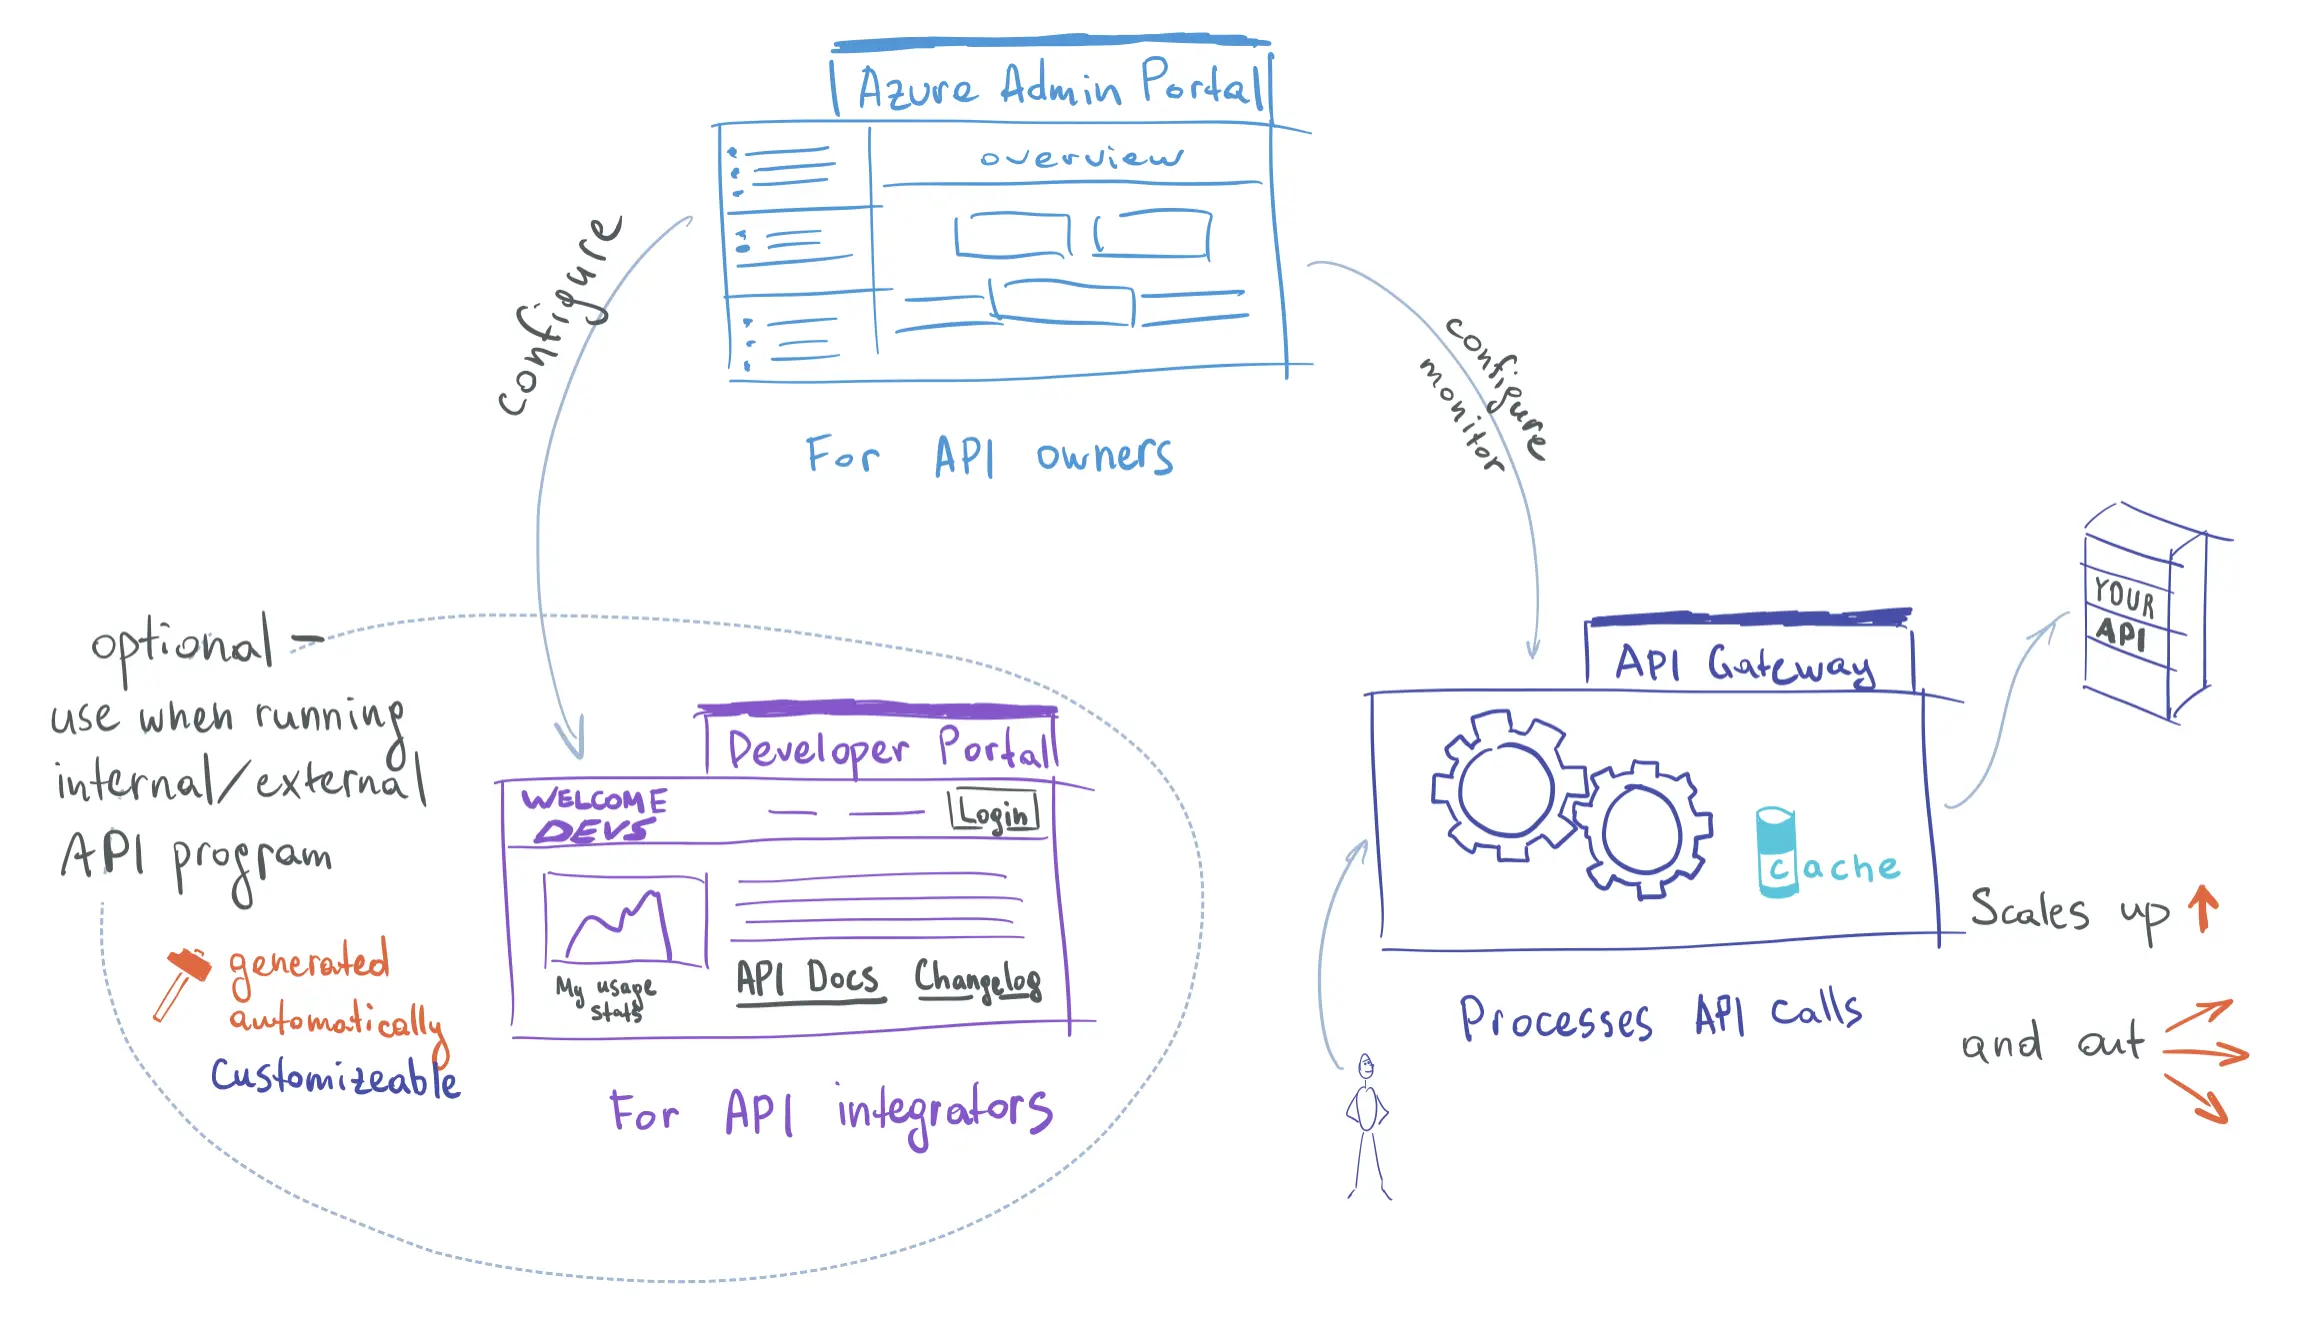 Azure Admin Portal
overview
For API owners
configure
configure
monitor
optional –
use when running
internal/external
API program
generated
automatically
Customizeable
Developer Portal
WELCOME
DEVS
Login
My usage
stats
API Docs
Changelog
For API integrators
API Gateway
cache
Processes API calls
YOUR
API
Scales up
and out